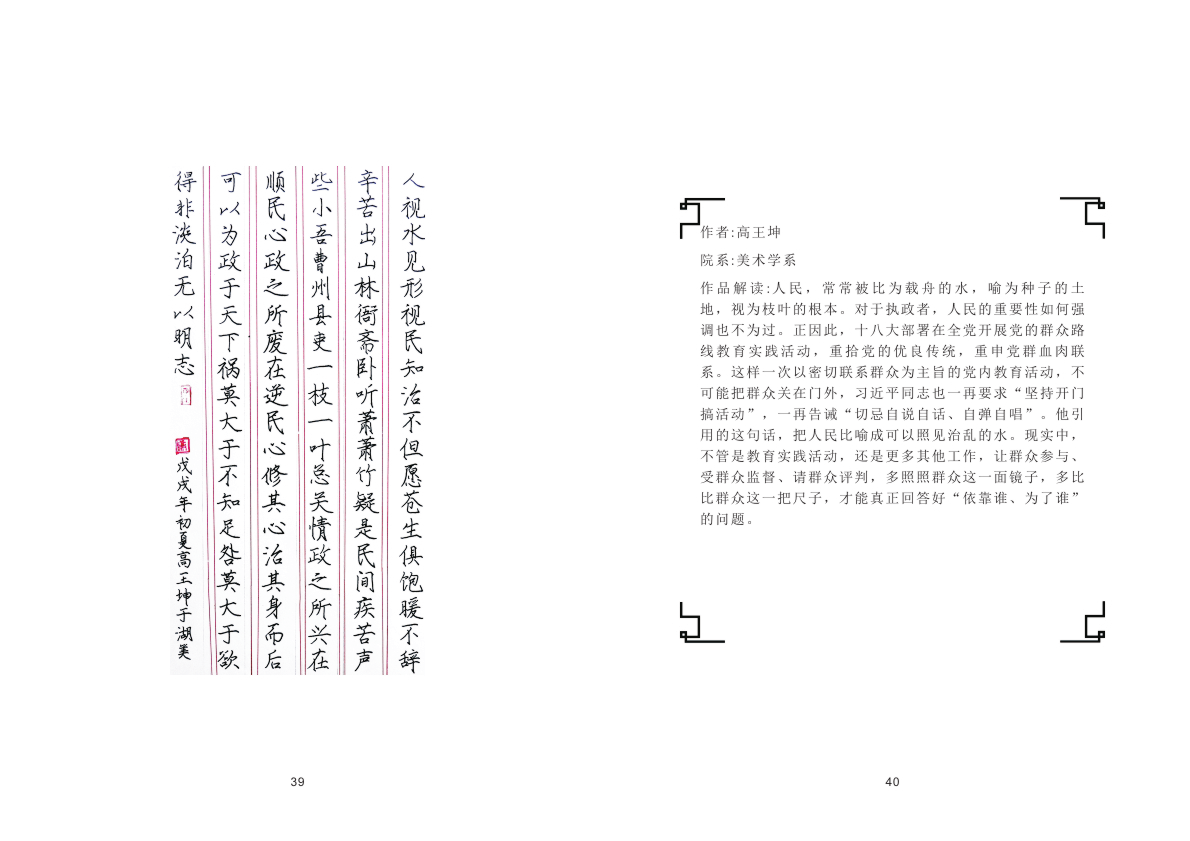 人视水见形视民知治不但愿苍生俱饱暖不辞
辛苦出山林衙斋卧听萧萧竹疑是民间疾苦声
些小吾曹州县吏一枝一叶总关情政之所兴在
顺民心政之所废在逆民心修其心治其身而后
可以为政于天下祸莫大于不知足咎莫大于欲
得非淡泊无以明志
戊戌年初夏高王坤于湖美
39
作者:高王坤
院系:美术学系
作品解读:人民，常常被比为载舟的水，喻为种子的土
地，视为枝叶的根本。对于执政者，人民的重要性如何强
调也不为过。正因此，十八大部署在全党开展党的群众路
线教育实践活动，重拾党的优良传统，重申党群血肉联
系。这样一次以密切联系群众为主旨的党内教育活动，不
可能把群众关在门外，习近平同志也一再要求“坚持开门
搞活动”，一再告诫“切忌自说自话、自弹自唱”。他引
用的这句话，把人民比喻成可以照见治乱的水。现实中，
不管是教育实践活动，还是更多其他工作，让群众参与、
受群众监督、请群众评判，多照照群众这一面镜子，多比
比群众这一把尺子，才能真正回答好“依靠谁、为了谁”
的问题。
40